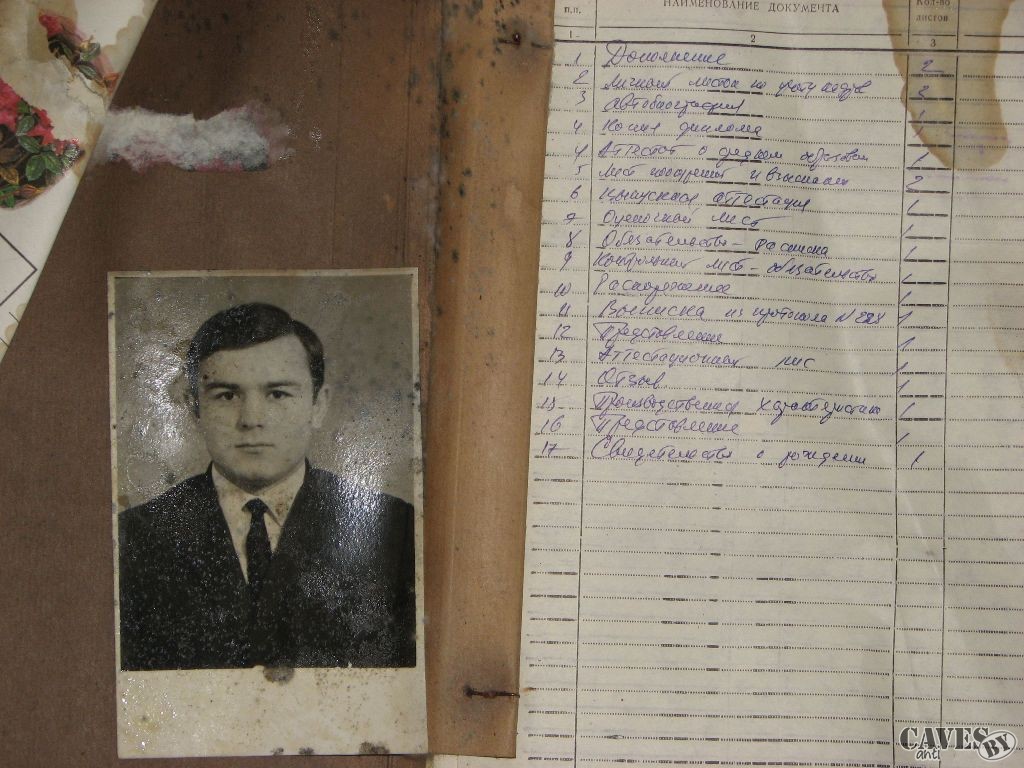 п.п. НАИМЕНОВАНИЕ ДОКУМЕНТА Кол-во листов
1 2 3
1 Дополнение 2
2 Личный листок по учету кадров 2
3 Автобиография 1
4 Копия диплома 1
4 Аттестат о среднем образован 1
5 Лист поощрений и взыскан 2
6 аттестация 1
7 Оценочный лист 1
8 Обязательство - расписка 1
9 Контрольный лист - обязательство 1
10 Распоряжение 1
11 Выписка из протокола N 1
12 Представление 1
13 Аттестационный лис 1
14 Отзыв 1
15 Производственная характеристика 1
16 Представление 1
17 Свидетельство о рождении 1
CAVES
anti
BY